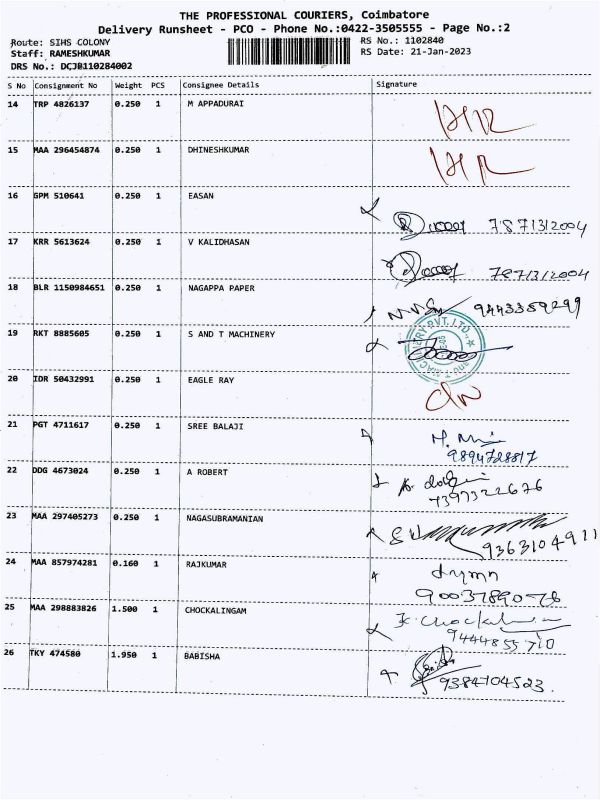 THE PROFESSIONAL COURIERS, Coimbatore
Delivery Runsheet - PCO - Phone No.:0422-3505555 - Page No.:2
Route: SIHS COLONY RS No.: 1102840
Staff: RAMESHKUMAR RS Date: 21-Jan-2023
DRS No.: DCJB110284002
S No Consignment No Weight PCS Consignee Details Signature
14 TRP 4826137 0.250 1 M APPADURAI
15 MAA 296454874 0.250 1 DHINESHKUMAR
16 GPM 510641 0.250 1 EASAN
7871312004
17 KRR 5613624 0.250 1 V KALIDHASAN
7871312004
18 BLR 1150984651 0.250 1 NAGAPPA PAPER
9443359299
19 RKT 8885605 0.250 1 S AND T MACHINERY
20 IDR 50432991 0.250 1 EAGLE RAY
21 PGT 4711617 0.250 1 SREE BALAJI
9894728817
22 DDG 4673024 0.250 1 A ROBERT
7397322676
23 MAA 297405273 0.250 1 NAGASUBRAMANIAN
9363104911
24 MAA 857974281 0.160 1 RAJKUMAR
9003789076
25 MAA 298883826 1.500 1 CHOCKALINGAM
9444855710
26 TKY 474580 1.950 1 BABISHA
9384104523